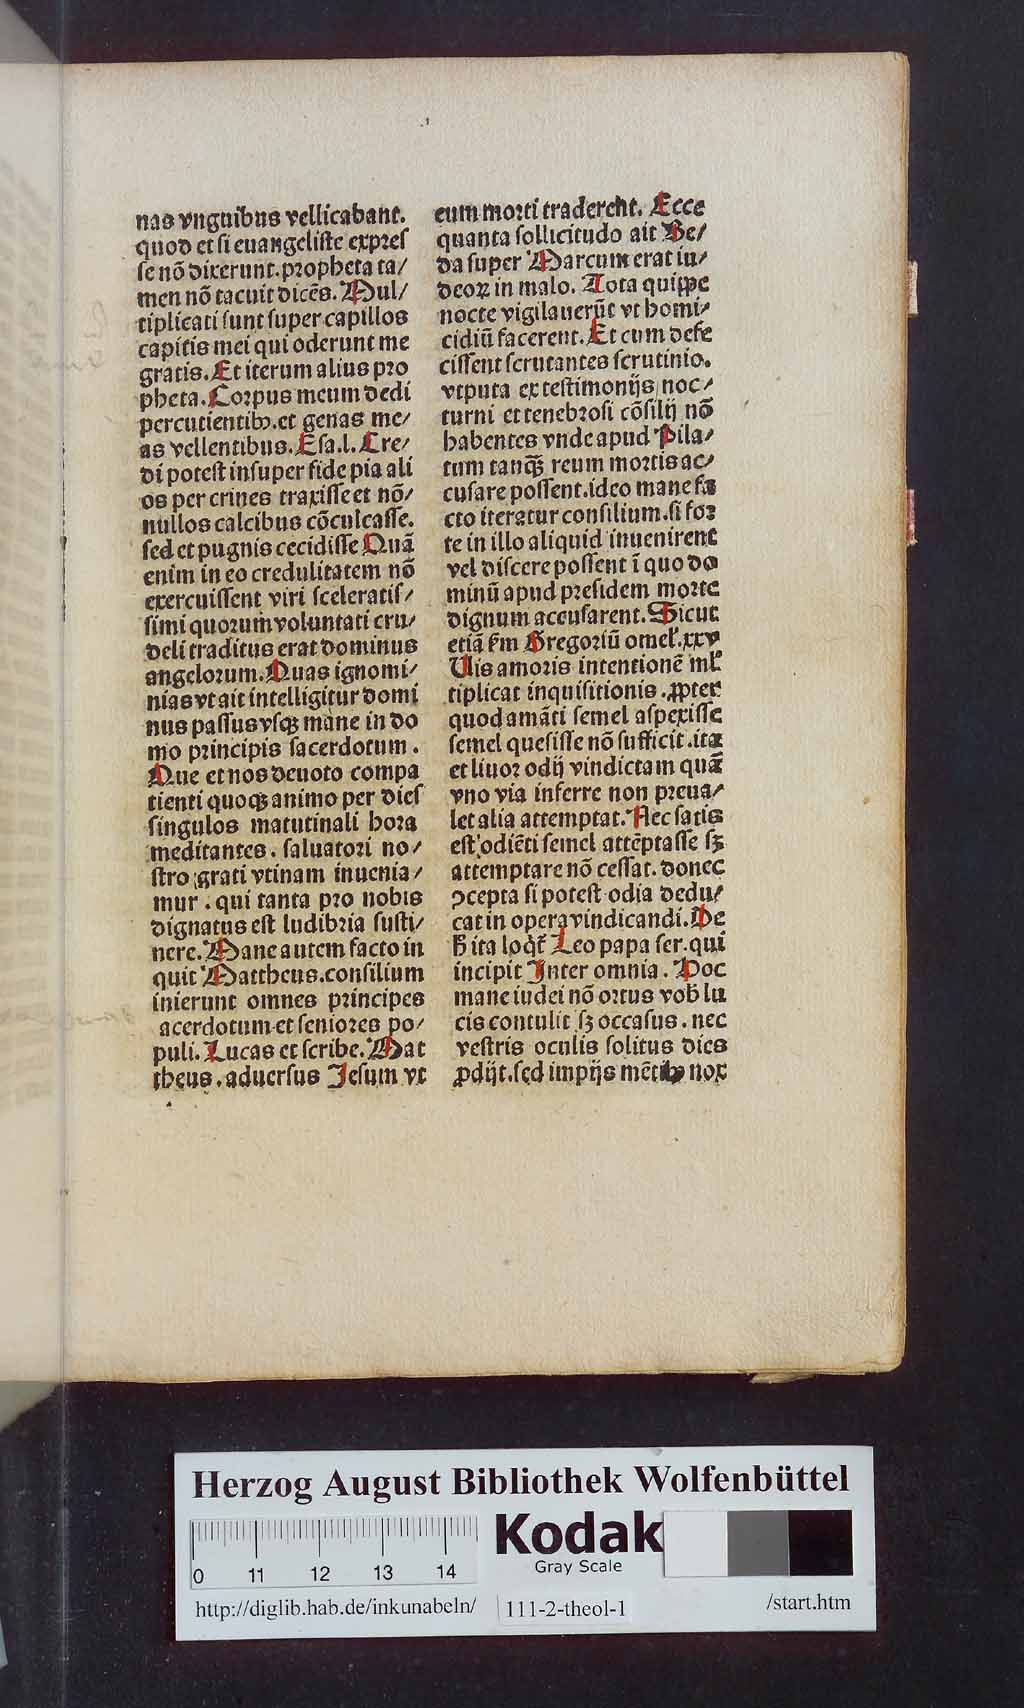 nas vnguibus vellicabant.
quod et si euangeliste expres
se nō dixerunt.propheta ta/
men nō tacuit dicēs. Mul/
tiplicati sunt super capillos
capitis mei qui oderunt me
gratis. Et iterum alius pro
pheta. Corpus meum dedi
percutientibꝫ.et genas me/
as vellentibus. Esa.l. Cre/
di potest insuper fide pia ali
os per crines traxisse et nō/
nullos calcibus cōculcasse.
sed et pugnis cecidisse Quā
enim in eo credulitatem nō
exercuissent viri sceleratis/
simi quorum voluntati cru/
deli traditus erat dominus
angelorum. Quas ignomi/
nias vt ait intelligitur domi
nus passus vsqꝫ mane in do
mo principis sacerdotum.
Que et nos deuoto compa
tienti quoqꝫ animo per dies
singulos matutinali hora
meditantes. saluatori no/
stro grati vtinam inuenia/
mur. qui tanta pro nobis
dignatus est ludibria susti/
nere. Mane autem facto in
quit Mattheus.consilium
inierunt omnes principes
acerdotum et seniores po/
puli. Lucas et scribe. Mat
theus. aduersus Jesum vt
eum morti traderent. Ecce
quanta sollicitudo ait Be/
da super Marcum erat iu/
deoꝝ in malo. Tota quippe
nocte vigilauerūt vt homi/
cidiū facerent. Et cum defe
cissent scrutantes scrutinio.
vtputa ex testimonijs noc/
turni et tenebrosi cōsilij nō
habentes vnde apud Pila/
tum tanqꝫ reum mortis ac/
cusare possent.ideo mane fa
cto iteratur consilium.si for
te in illo aliquid inuenirent
vel discere possent ī quo do
minū apud presidem morte
dignum accusarent. Sicut
etiā fm Gregoriū omel'.xxv
Uis amoris intentionē ml'
tiplicat inquisitionis.ꝓpter
quod amāti semel aspexisse
semel quesisse nō sufficit.ita
et liuor odij vindictam quā
vno via inferre non preua/
let alia attemptat. Nec satis
est odiēti semel attēptasse sꝫ
attemptare nō cessat. donec
ↄcepta si potest odia dedu/
cat in opera vindicandi. De
h̄ ita loqt' Leo papa ser.qui
incipit Inter omnia. Hoc
mane iudei nō ortus vob lu
cis contulit sꝫ occasus. nec
vestris oculis solitus dies
ꝓdijt.sed impijs mētibꝫ nox
Herzog August Bibliothek Wolfenbüttel
0 11 12 13 14
Kodak
Gray Scale
http://diglib.hab.de/inkunabeln/ 111-2-theol-1 /start.htm